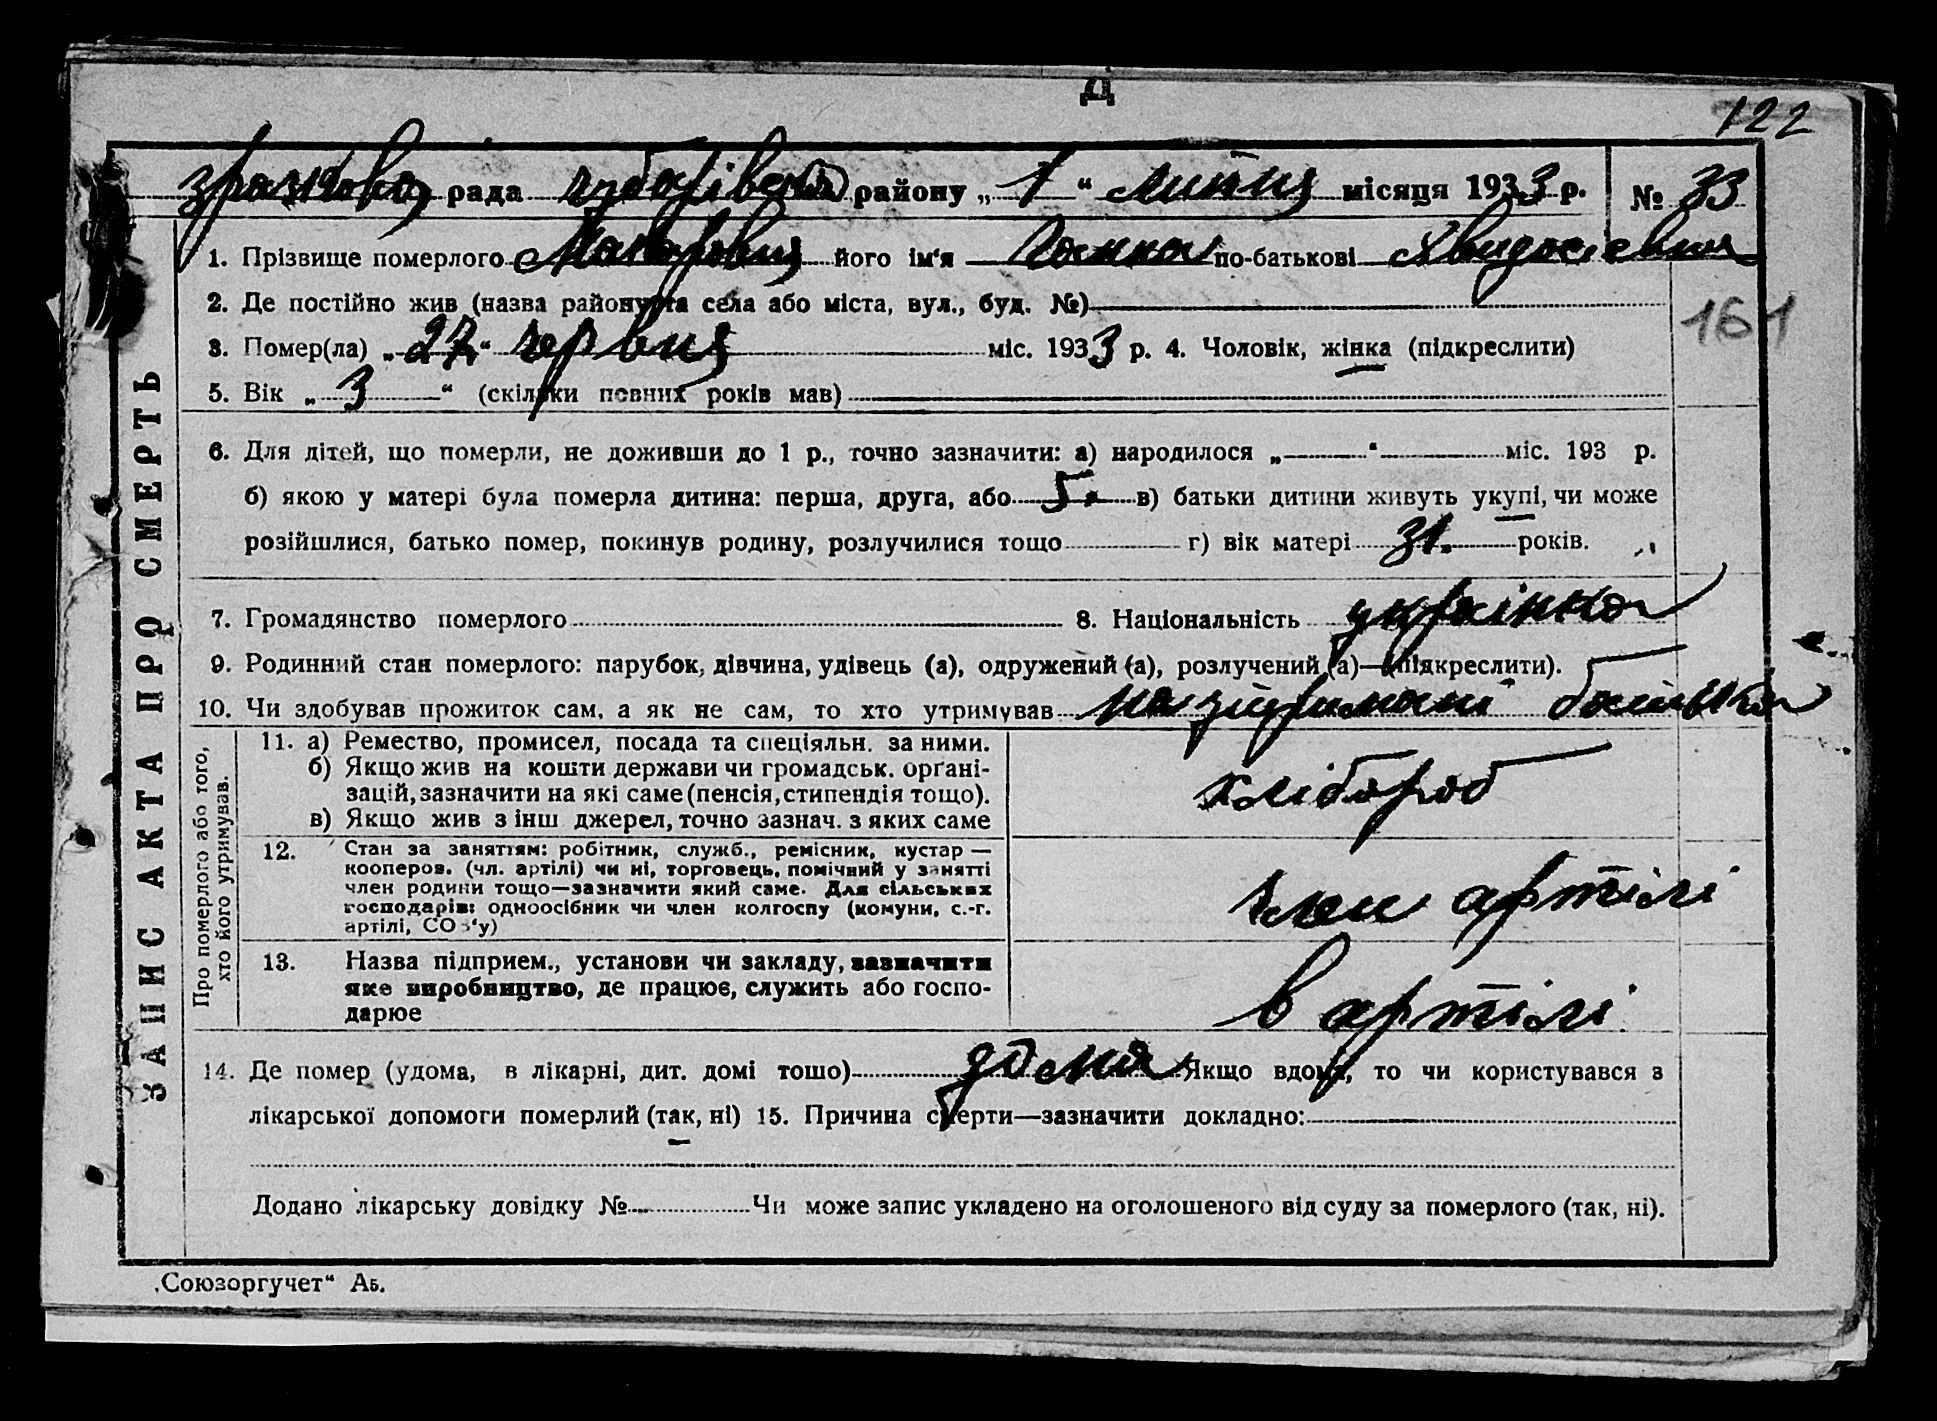 Д
122
рада району „ 1 “ липня місяця 1933 р. № 33
1. Прізвище померлого його ім'я Ганна по-батькові
2. Де постійно жив (назва району та села або міста, вул., буд. №)
161
3. Помер(ла) „ 27 “ червня міс. 1933 р. 4. Чоловік, жінка (підкреслити)
5. Вік „ 3 “ (скільки повних років мав)
6. Для дітей, що померли, не доживши до 1 р., точно зазначити: а) народилося „ “ міс. 193 р.
б) якою у матері була померла дитина: перша, друга, або 5. в) батьки дитини живуть укупі, чи може
розійшлися, батько помер, покинув родину, розлучилися тощо г) вік матері 31. років.
7. Громадянство померлого 8. Національність українка
9. Родинний стан померлого: парубок, дівчина, удівець (а), одружений (а), розлучений (а)—(підкреслити).
10. Чи здобував прожиток сам, а як не сам, то хто утримував на утриманні батька
ЗАПИС АКТА ПРО СМЕРТЬ
Про померлого або того,
хто його утримував.
11. а) Ремество, промисел, посада та спеціяльн. за ними.
б) Якщо жив на кошти держави чи громадськ. органі-
зацій, зазначити на які саме (пенсія, стипендія тощо).
в) Якщо жив з інш джерел, точно зазнач. з яких саме
хлібороб
12. Стан за заняттям: робітник, служб., ремісник, кустар —
кооперов. (чл. артілі) чи ні, торговець, помічний у занятті
член родини тощо—зазначити який саме. Для сільських
господарів: одноосібник чи член колгоспу (комуни, с.-г.
артілі, СОЗ'у)
член артілі
13. Назва підприєм., установи чи закладу, зазначити
яке виробництво, де працює, служить або госпо-
дарює
в артілі
14. Де помер (удома, в лікарні, дит. домі тощо) дома Якщо вдома, то чи користувався з
лікарської допомоги померлий (так, ні) 15. Причина смерти—зазначити докладно:
Додано лікарську довідку № Чи може запис укладено на оголошеного від суду за померлого (так, ні).
„Союзоргучет“ Аб.